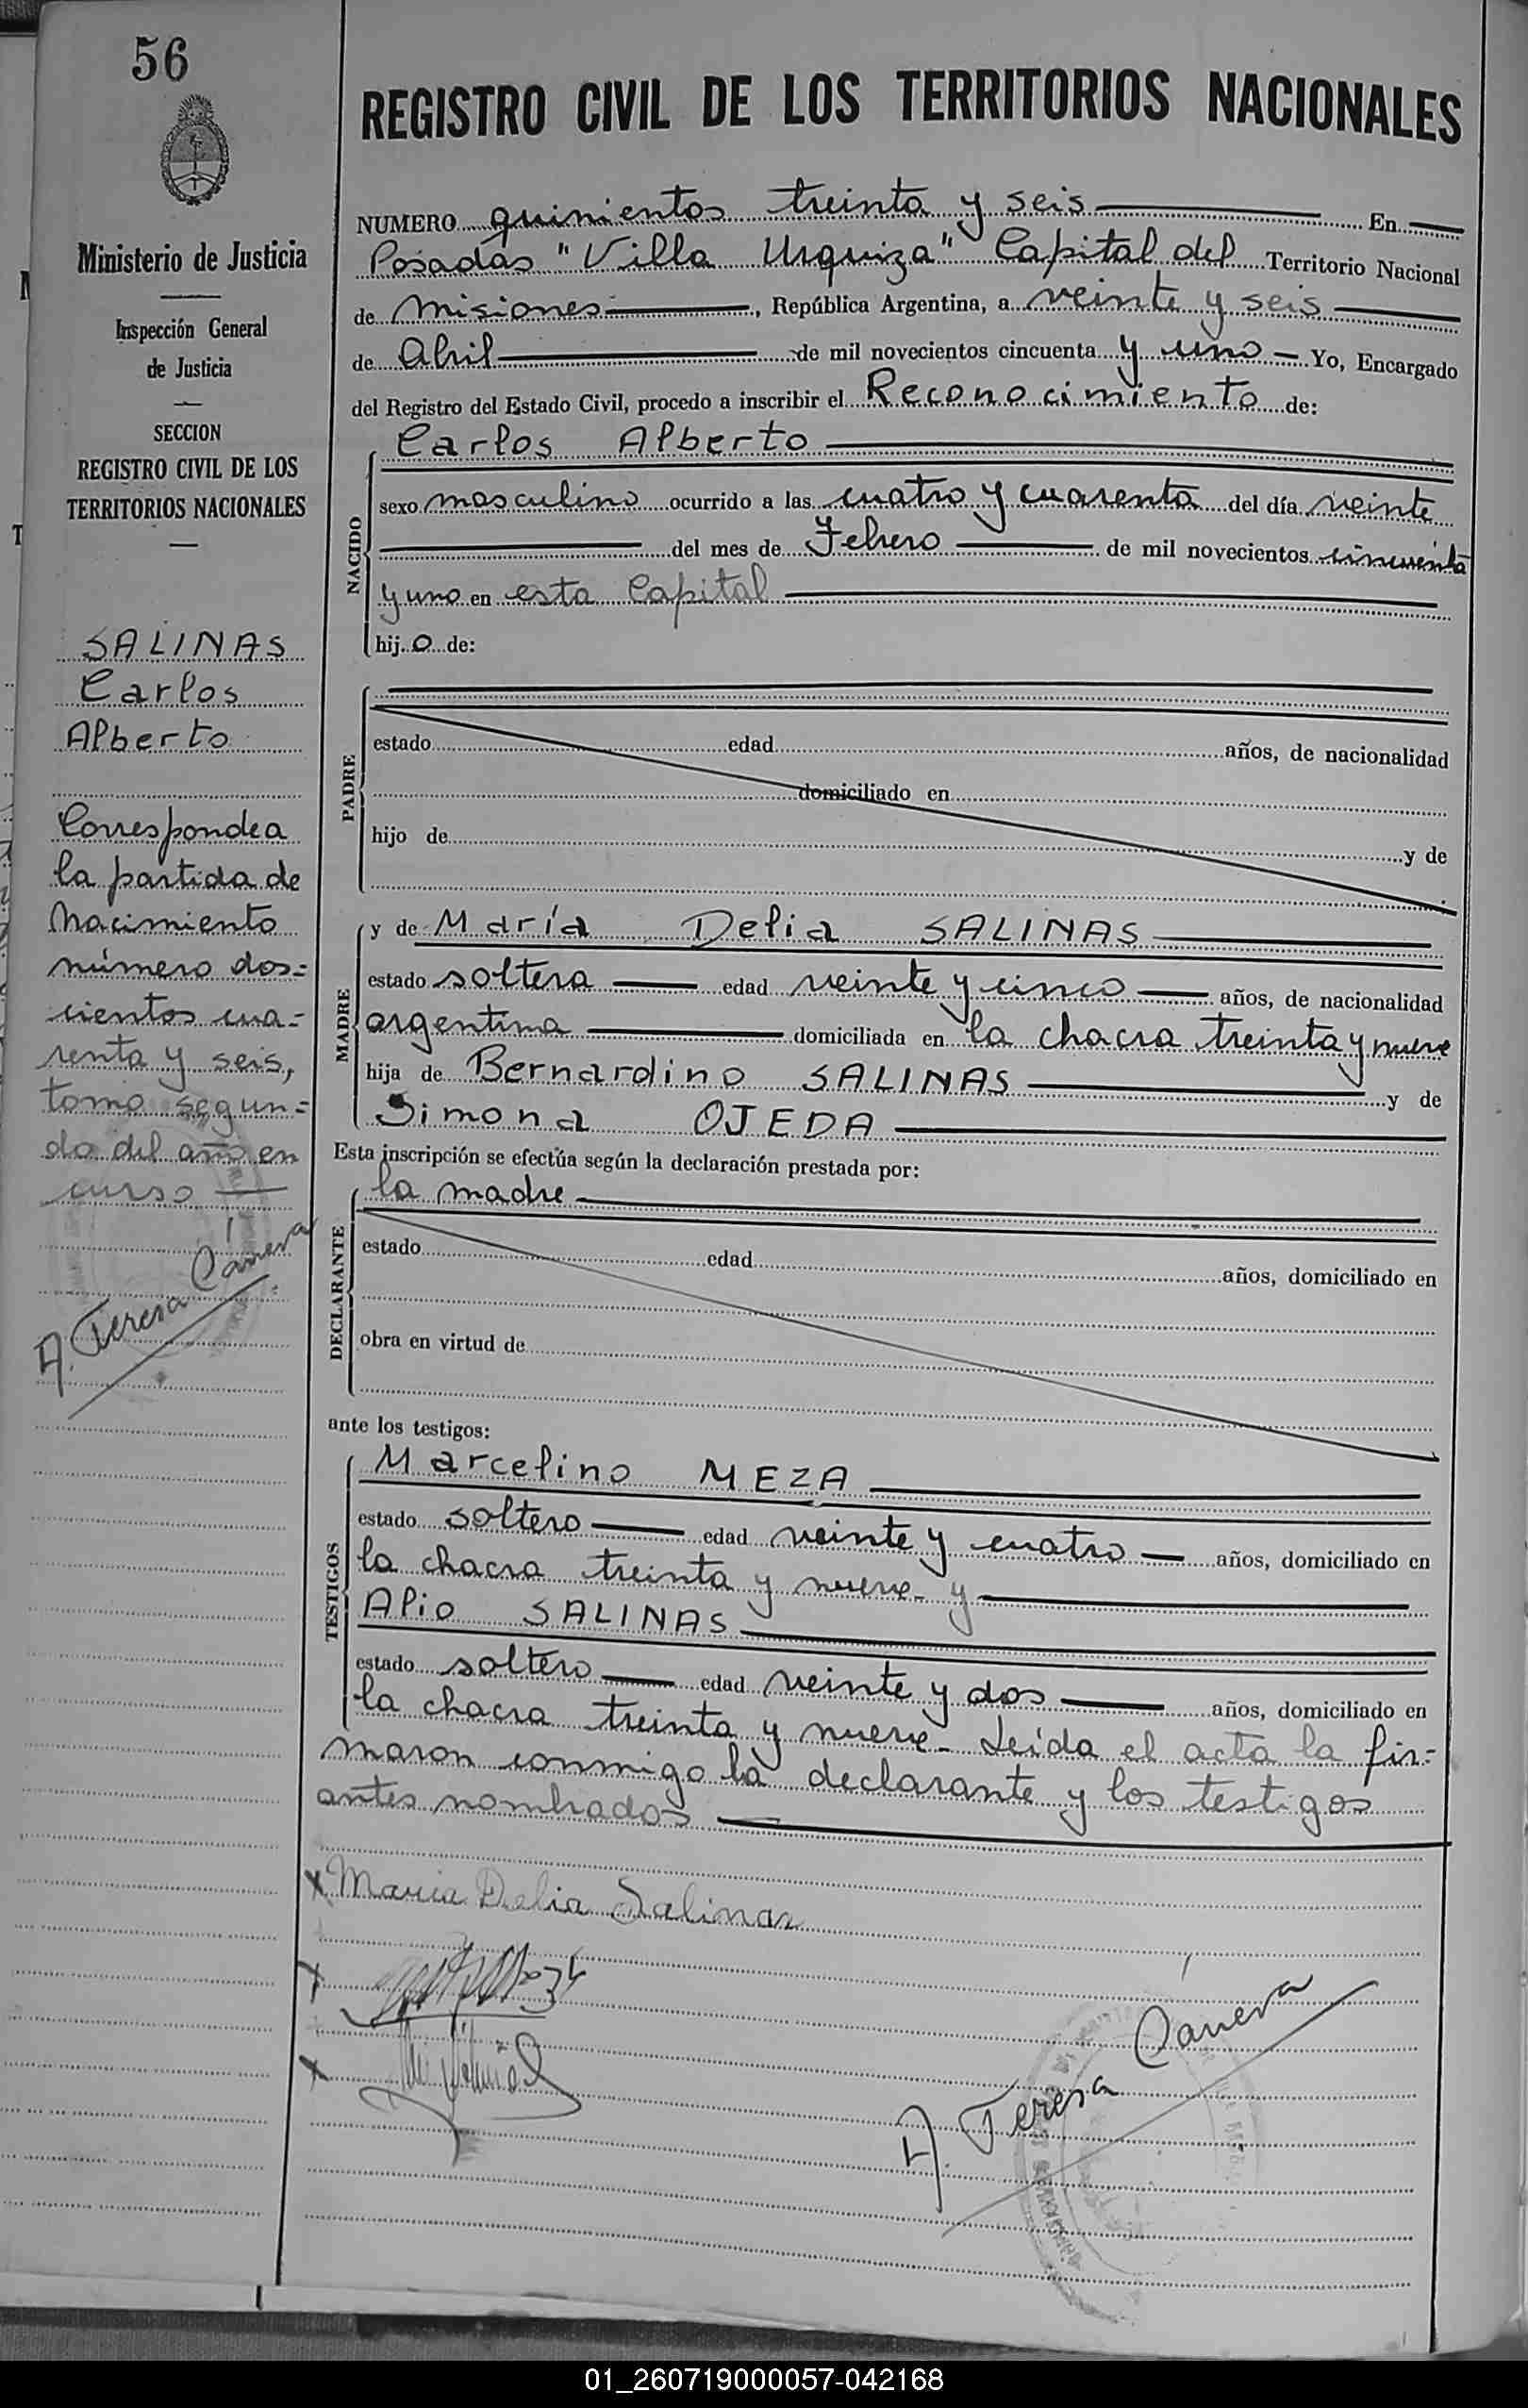 56
Ministerio de Justicia
Inspección General
de Justicia
SECCION
REGISTRO CIVIL DE LOS
TERRITORIOS NACIONALES
SALINAS
Carlos
Alberto
Corresponde a
la partida de
Nacimiento
número dos=
cientos cua=
renta y seis,
tomo segun=
do del año en
curso
A. Teresa Canera
REGISTRO CIVIL DE LOS TERRITORIOS NACIONALES
NUMERO quinientos treinta y seis En
Posadas "Villa Urquiza" Capital del Territorio Nacional
de Misiones, República Argentina, a veinte y seis
de Abril de mil novecientos cincuenta y uno Yo, Encargado
del Registro del Estado Civil, procedo a inscribir el Reconocimiento de:
NACIDO
Carlos Alberto
sexo masculino ocurrido a las cuatro y cuarenta del día veinte
del mes de Febrero de mil novecientos cincuenta
y uno en esta Capital
hijo de:
PADRE
estado edad años, de nacionalidad
domiciliado en
hijo de y de
MADRE
y de María Delia SALINAS
estado soltera edad veinte y cinco años, de nacionalidad
argentina domiciliada en la chacra treinta y nueve
hija de Bernardino SALINAS y de
Simona OJEDA
Esta inscripción se efectúa según la declaración prestada por:
DECLARANTE
la madre
estado edad años, domiciliado en
obra en virtud de
ante los testigos:
TESTIGOS
Marcelino MEZA
estado soltero edad veinte y cuatro años, domiciliado en
la chacra treinta y nueve- y
Alio SALINAS
estado soltero edad veinte y dos años, domiciliado en
la chacra treinta y nueve- Leída el acta la fir=
maron conmigo la declarante y los testigos
antes nombrados
x Maria Delia Salinas
x
x
A. Teresa Canera
01_260719000057-042168